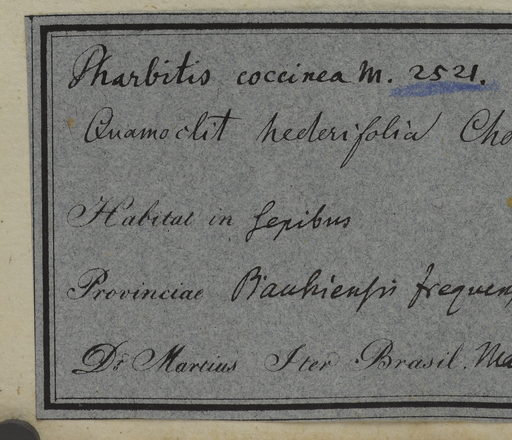 Pharbitis coccinea M. 2521.
Quamoclit hederifolia Cho
Habitat in Sepibus
Provinciae Bauhiensis frequens
Dr Martius Iter Brasil. Ma